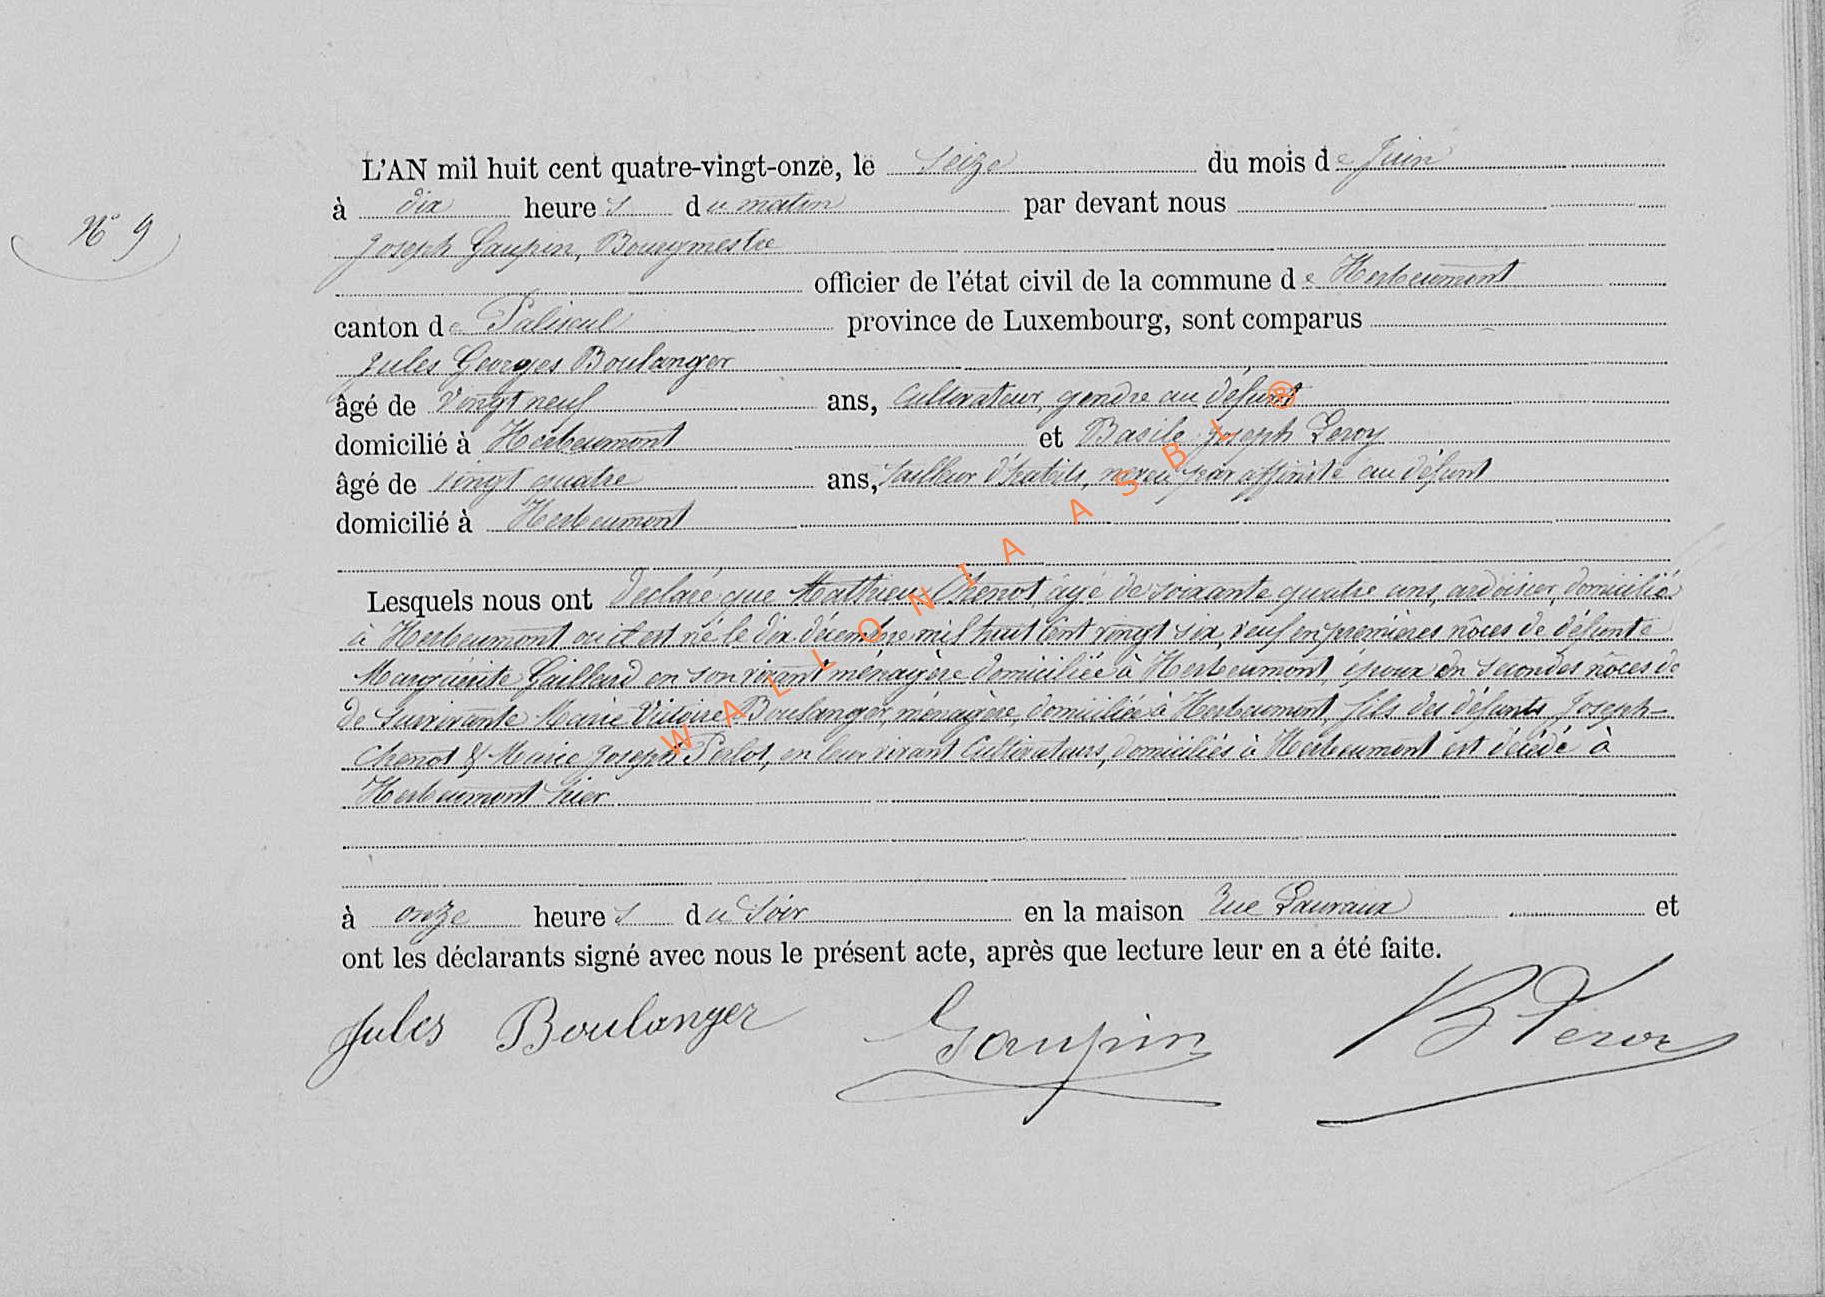 L'AN mil huit cent quatre-vingt-onze, le seize du mois de Juin
à dix heures du matin par devant nous
Nº 9
Joseph Gaupin, Bourgmestre
officier de l'état civil de la commune de Herbeumont
canton de Paliseul province de Luxembourg, sont comparus
Jules Georges Boulanger
âgé de vingt neuf ans, cultivateur, gendre au défunt
domicilié à Herbeumont et Basile Joseph Leroy
âgé de vingt quatre ans, tailleur d'habits, neveu par affinité au défunt
domicilié à Herbeumont
Lesquels nous ont déclaré que Mathieu Chenot, âgé de soixante quatre ans, ardoisier, domicilié
à Herbeumont où il est né le dix décembre mil huit cent vingt six, veuf en premières nôces de défunte
Marguerite Gaillard en son vivant ménagère domiciliée à Herbeumont, époux en secondes nôces de
de survivante Marie Victoire Boulanger, ménagère, domiciliée à Herbeumont, fils des défunts Joseph
Chenot & Marie Joseph Perlot, en leur vivant Cultivateurs, domiciliés à Herbeumont est décédé à
Herbeumont hier
à onze heures du soir en la maison rue Lauvaux et
ont les déclarants signé avec nous le présent acte, après que lecture leur en a été faite.
Jules Boulanger Gaupin B Leroy
WALLONIA ASBL ®